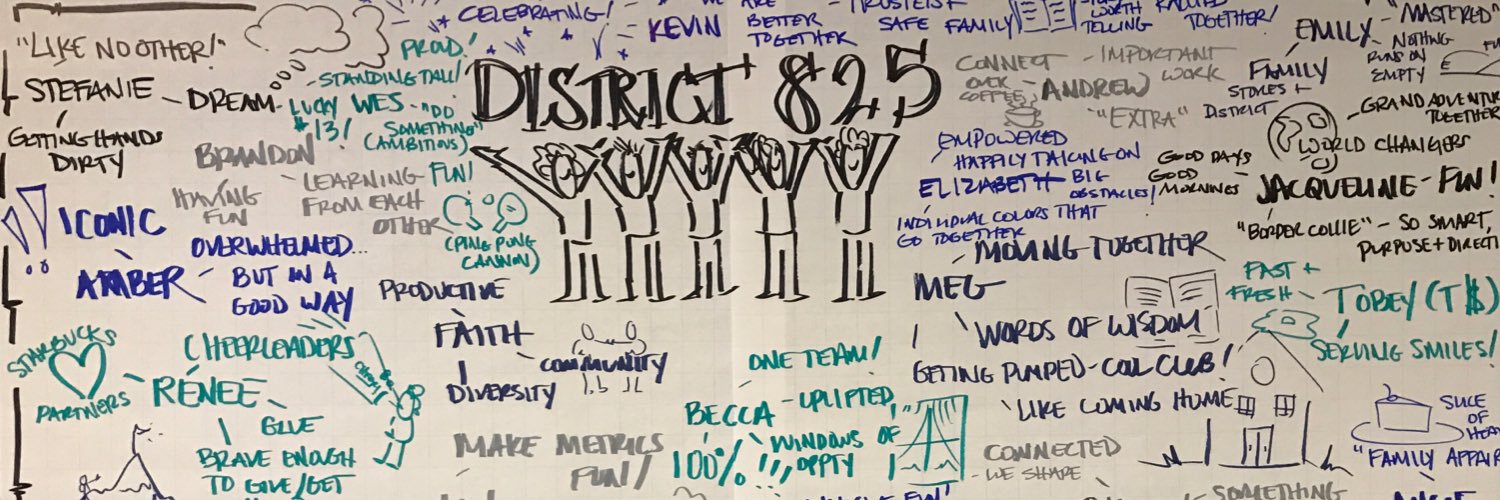 "LIKE NO OTHER!"
STEFANIE - DREAM
GETTING HANDS
DIRTY
PROUD!
STANDING TALL!
LUCKY
#13!
WES - "DO
SOMETHING"
(AMBITIONS)
CELEBRATING!
KEVIN
BETTER
TOGETHER
SAFE FAMILY
WORTH
TELLING
TOGETHER!
DISTRICT 825
BRANDON
HAVING
FUN
- LEARNING
FROM EACH
OTHER
FUN!
(PING PONG
CANNON)
CONNECT
OVER
COFFEE
- IMPORTANT
WORK
ANDREW
"EXTRA"
EMILY - "MASTERED"
- NOTHING
RUNS ON
EMPTY
FAMILY
STORES +
DISTRICT
- GRAND ADVENTURE
TOGETHER
WORLD CHANGERS
EMPOWERED
HAPPILY TAKING ON
BIG
OBSTACLES!
ELIZABETH
INDIVIDUAL COLORS THAT
GO TOGETHER
GOOD DAYS
GOOD
MORNINGS
JACQUELINE - FUN!
"BORDER COLLIE" - SO SMART,
PURPOSE + DIRECTI
ICONIC
AMBER
OVERWHELMED...
BUT IN A
GOOD WAY
PRODUCTIVE
FAITH
COMMUNITY
DIVERSITY
- MOVING TOGETHER
MEG
WORDS OF WISDOM
GETTING PUMPED - COOL CLUB!
LIKE COMING HOME
FAST +
FRESH
TOBEY (T$)
SERVING SMILES!
STARBUCKS
PARTNERS
CHEERLEADERS
RENEE
GLUE
BRAVE ENOUGH
TO GIVE/GET
MAKE METRICS
FUN!
ONE TEAM!
BECCA - UPLIFTED
100%!!!
WINDOWS OF
OPPTY
CONNECTED
- WE SHARE
SOMETHING
SLICE
OF
"FAMILY AFFAIR